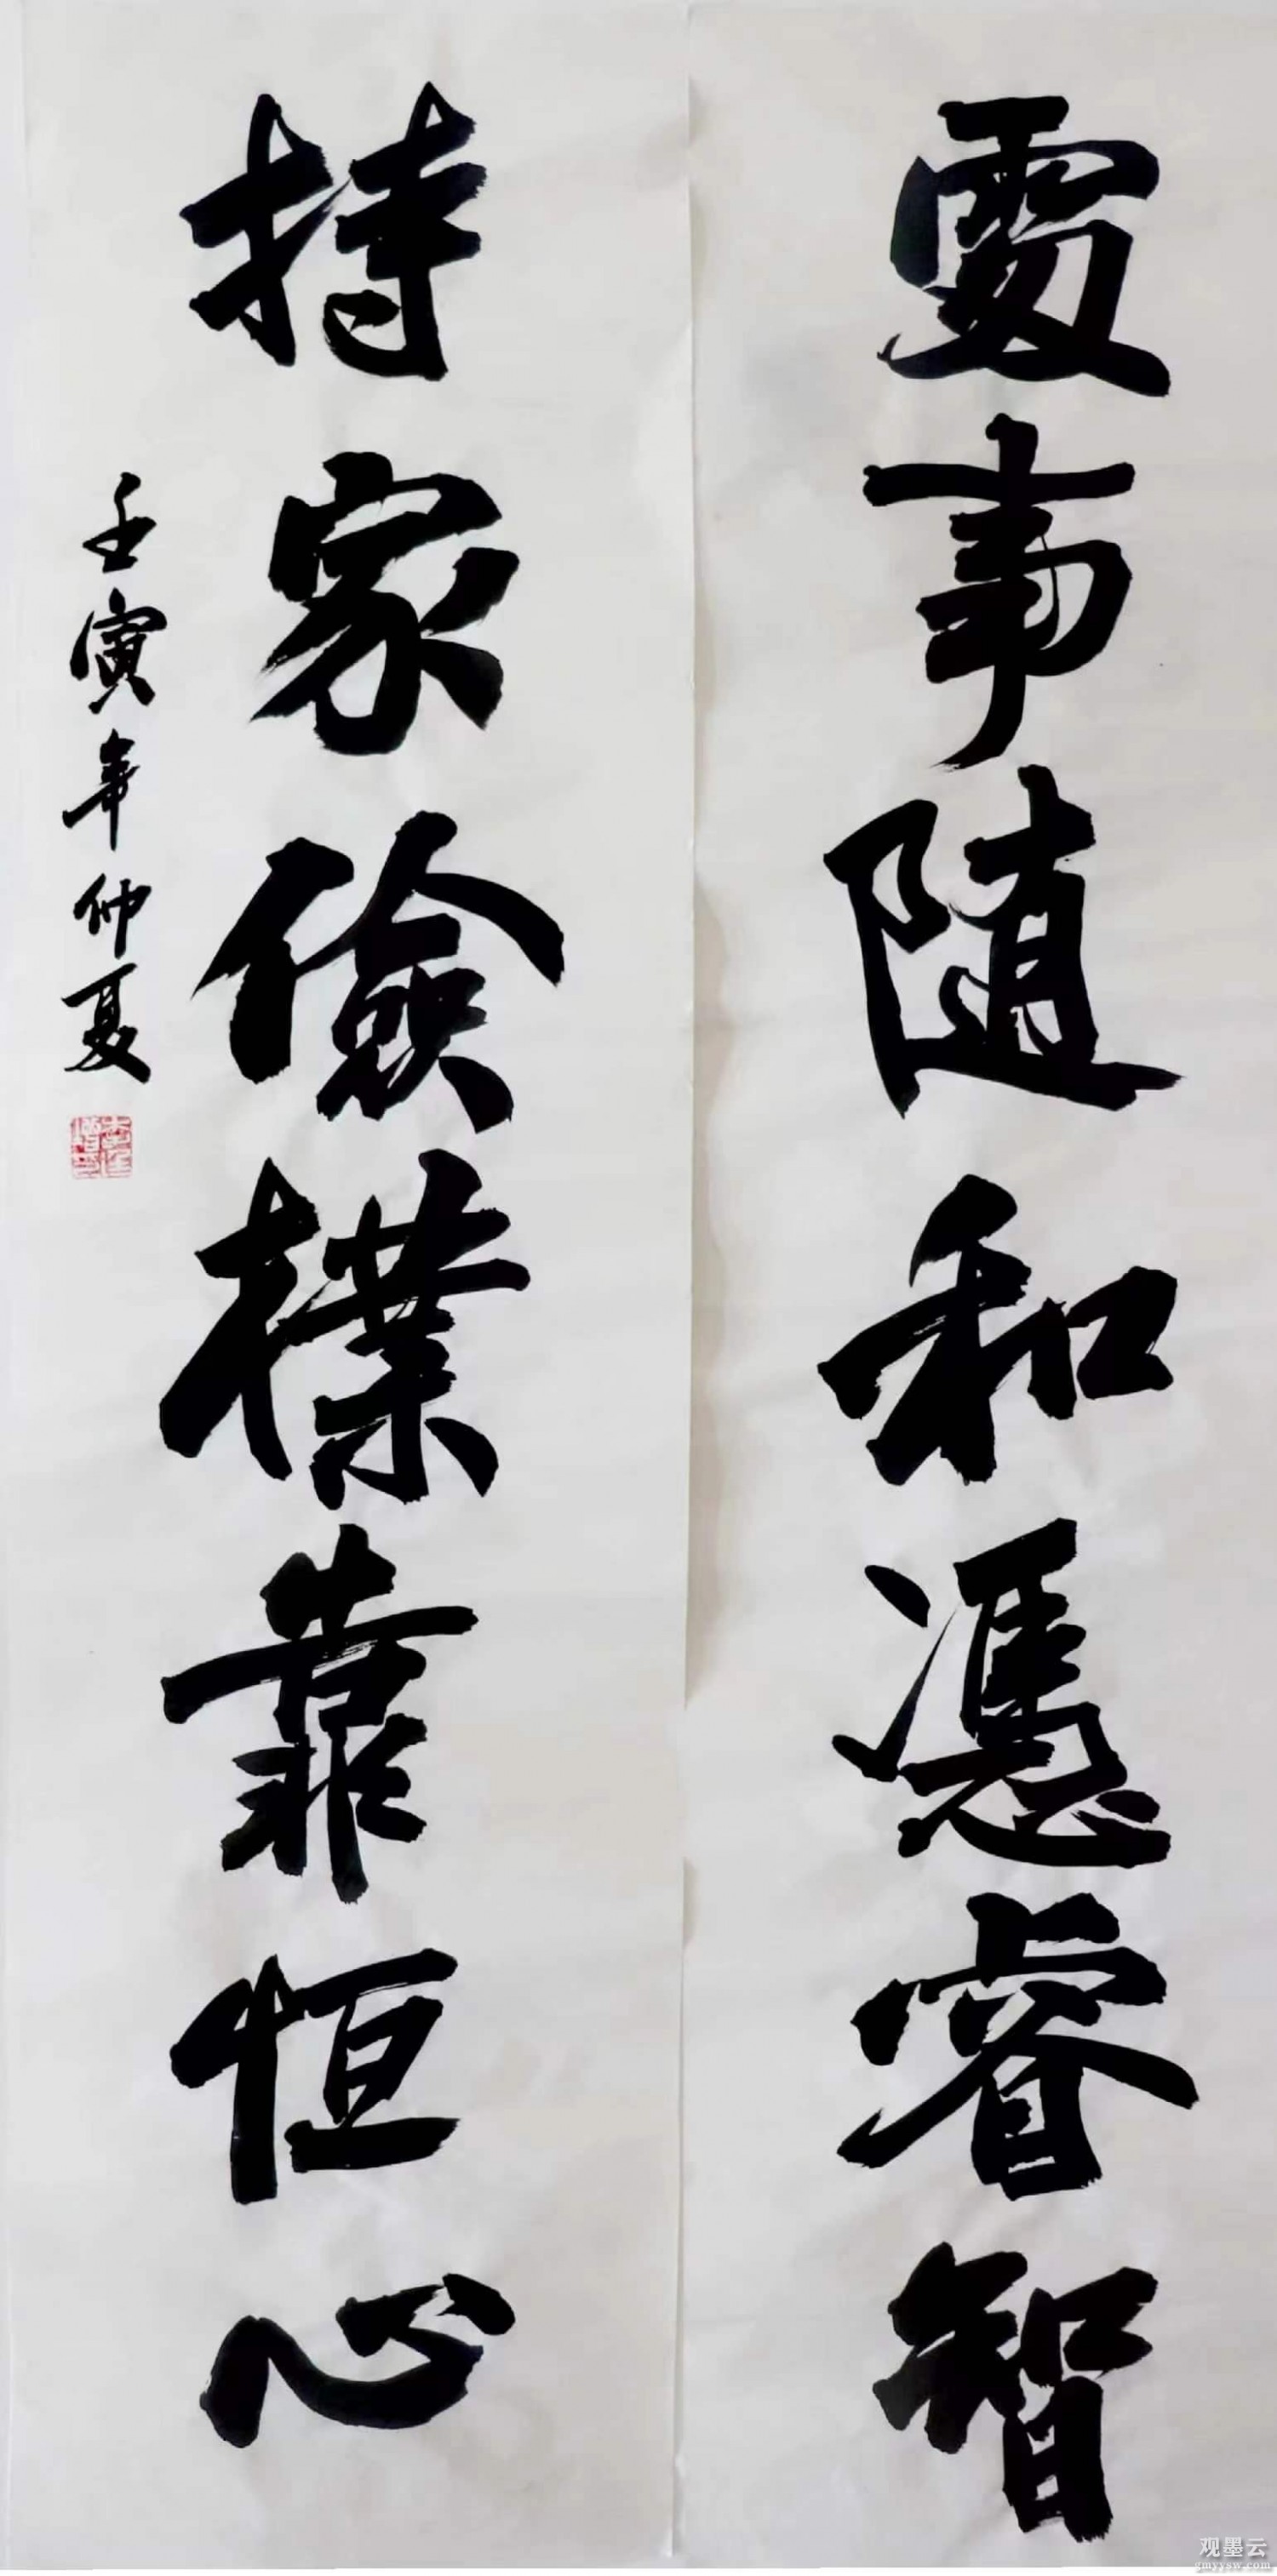 處事随和憑睿智
持家儉樸靠恒心
壬寅年仲夏
观墨云
gmyysw.com